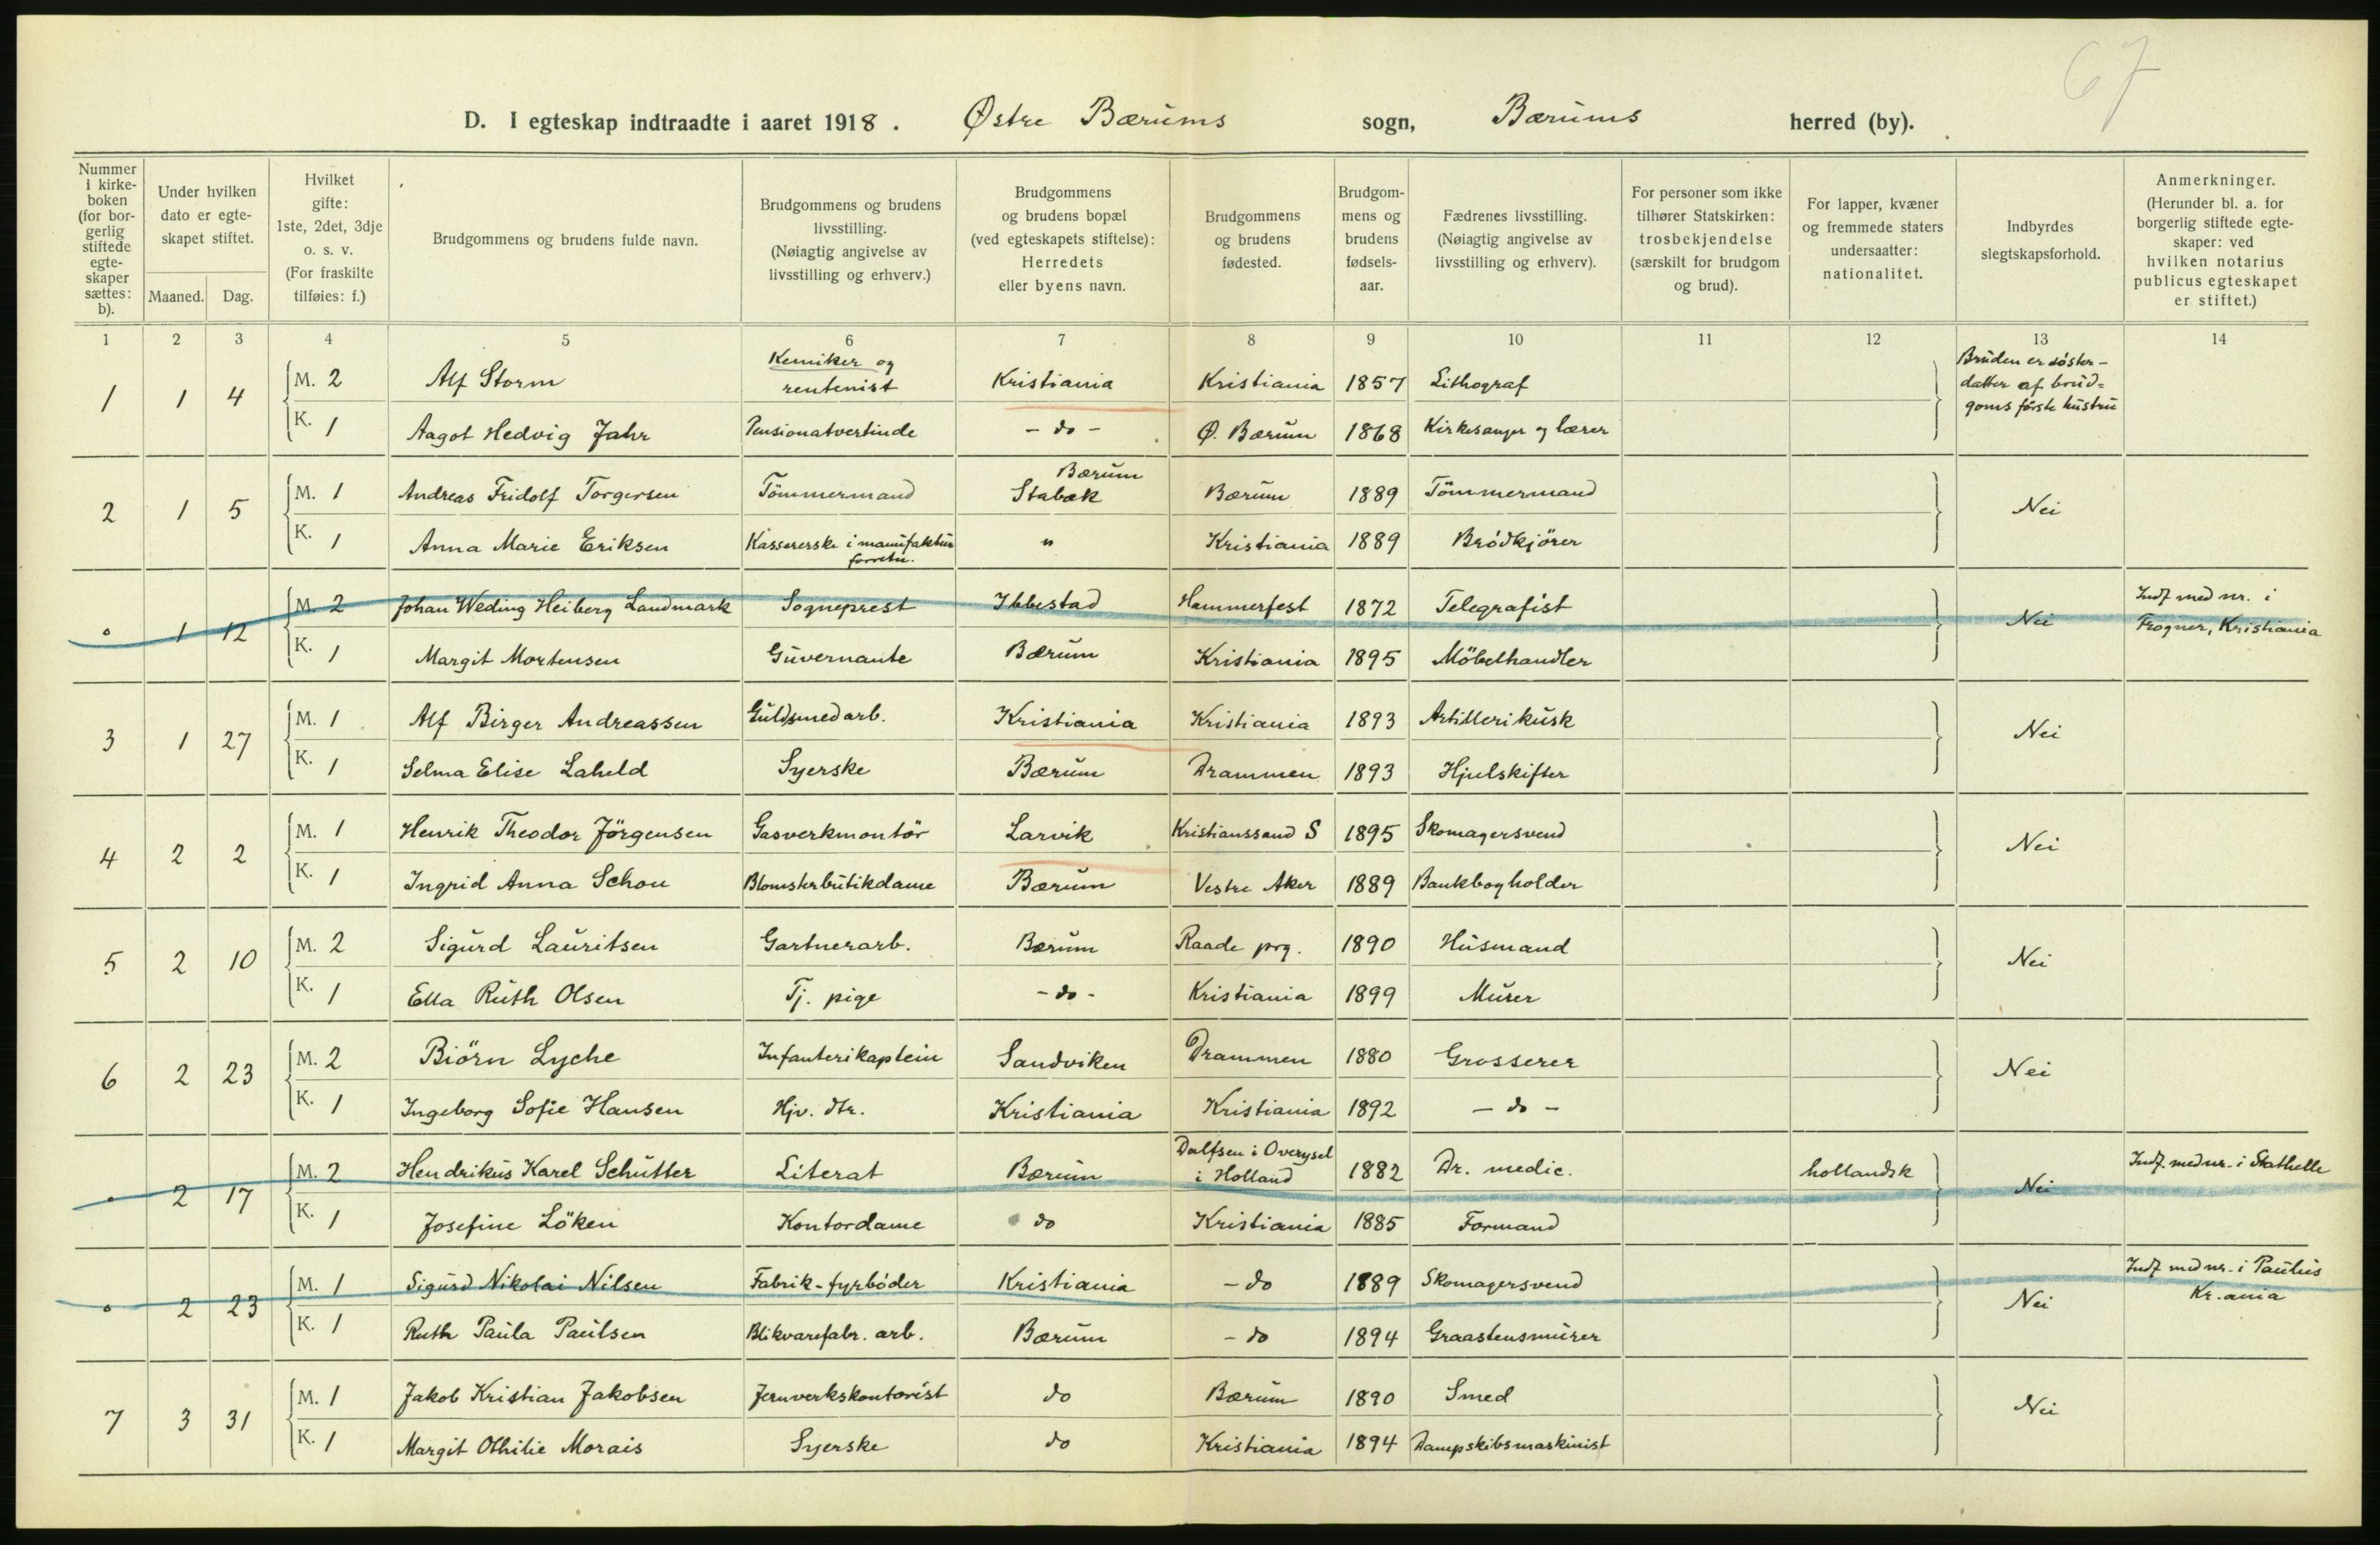 67
D. I egteskap indtraadte i aaret 1918. Østre Bærums sogn, Bærums herred (by).
Nummer i kirke-boken (for bor-gerlig stiftede egte-skaper sættes: b). | Under hvilken dato er egte-skapet stiftet. Maaned. Dag. | Hvilket gifte: 1ste, 2det, 3dje o. s. v. (For fraskilte tilføies: f.) | Brudgommens og brudens fulde navn. | Brudgommens og brudens livsstilling. (Nøiagtig angivelse av livsstilling og erhverv.) | Brudgommens og brudens bopæl (ved egteskapets stiftelse): Herredets eller byens navn. | Brudgommens og brudens fødested. | Brudgom-mens og brudens fødsels-aar. | Fædrenes livsstilling. (Nøiagtig angivelse av livsstilling og erhverv). | For personer som ikke tilhører Statskirken: trosbekjendelse (særskilt for brudgom og brud). | For lapper, kvæner og fremmede staters undersaatter: nationalitet. | Indbyrdes slegtskapsforhold. | Anmerkninger. (Herunder bl. a. for borgerlig stiftede egte-skaper: ved hvilken notarius publicus egteskapet er stiftet.)
1 2 3 4 5 6 7 8 9 10 11 12 13 14
1 1 4 M. 2 Alf Storm Kemiker og rentenist Kristiania Kristiania 1857 Lithograf Bruden er söster-datter af brud=goms förste hustru
K. 1 Aagot Hedvig Jahr Pensionatvertinde - do - Ø. Bærum 1868 Kirkesanger og lærer
2 1 5 M. 1 Andreas Fridolf Torgersen Tömmermand Bærum Stabæk Bærum 1889 Tömmermand Nei
K. 1 Anna Marie Eriksen Kassererske i manufaktur forretn. " Kristiania 1889 Brödkjörer
° 1 12 M. 2 Johan Weding Heiberg Landmark Sogneprest Ibbestad Hammerfest 1872 Telegrafist Nei Indf med nr. i Frogner, Kristiania
K. 1 Margit Mortensen Guvernante Bærum Kristiania 1895 Möbelhandler
3 1 27 M. 1 Alf Birger Andreassen Guldsmedarb. Kristiania Kristiania 1893 Artillerikusk Nei
K. 1 Selma Elise Laheld Syerske Bærum Drammen 1893 Hjulskifter
4 2 2 M. 1 Henrik Theodor Jörgensen Gasverkmontör Larvik Kristianssand S 1895 Skomagersvend Nei
K. 1 Ingrid Anna Schou Blomsterbutikdame Bærum Vestre Aker 1889 Bankbogholder
5 2 10 M. 2 Sigurd Lauritsen Gartnerarb. Bærum Raade prg. 1890 Husmand Nei
K. 1 Ella Ruth Olsen Tj. pige - do - Kristiania 1899 Murer
6 2 23 M. 2 Biörn Lyche Infanterikaptein Sandviken Drammen 1880 Grosserer Nei
K. 1 Ingeborg Sofie Hansen Hjv. dtr. Kristiania Kristiania 1892 - do -
° 2 17 M. 2 Hendrikus Karel Schutter Literat Bærum Dalfsen i Overysel i Holland 1882 Dr. medic. hollandsk Nei Indf. med nr. i Stathelle
K. 1 Josefine Löken Kontordame do Kristiania 1885 Formand
° 2 23 M. 1 Sigurd Nikolai Nilsen Fabrik-fyrböder Kristiania - do 1889 Skomagersvend Nei Indf med nr. i Paulus Kr.ania
K. 1 Ruth Paula Paulsen Blikvarefabr. arb. Bærum - do 1894 Graastensmurer
7 3 31 M. 1 Jakob Kristian Jakobsen Jernverkskontorist do Bærum 1890 Smed Nei
K. 1 Margit Othilie Morais Syerske do Kristiania 1894 Dampskibsmaskinist